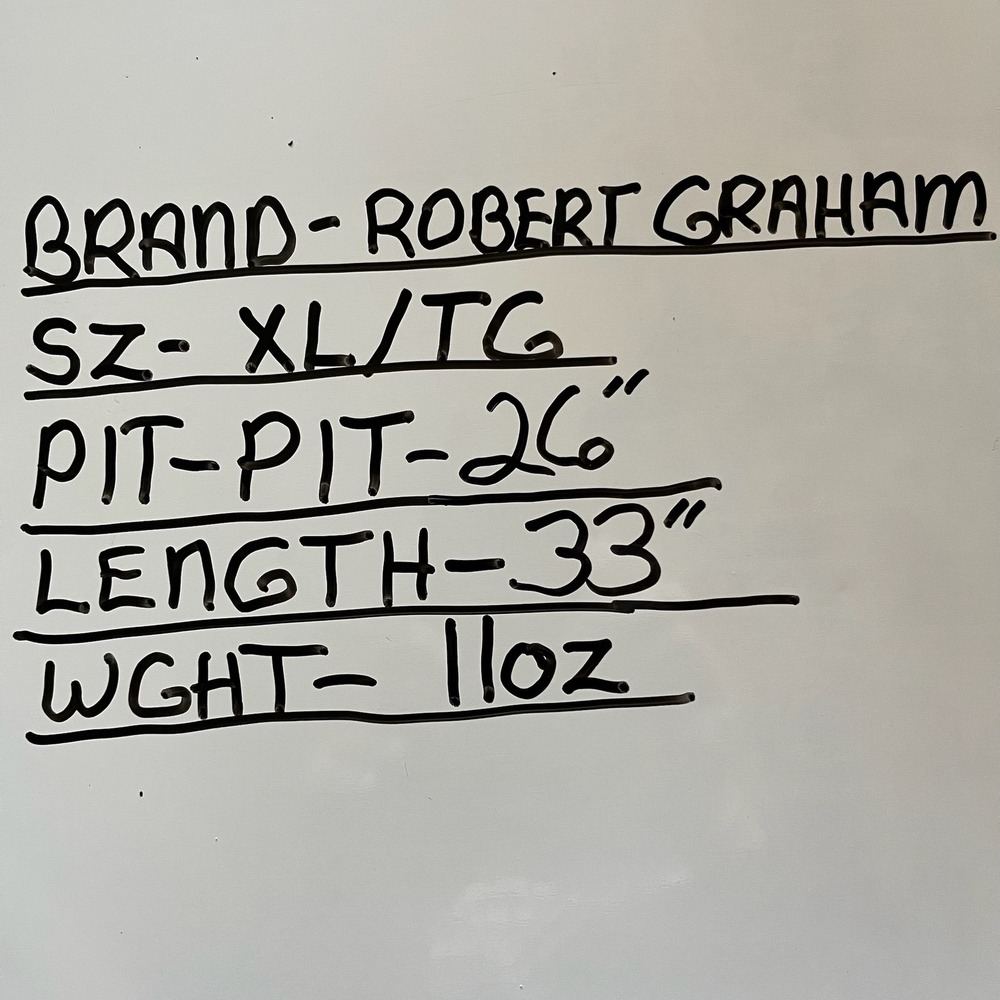 BRAND- ROBERT GRAHAM
SZ- XL/TG
PIT-PIT-26"
LENGTH-33"
WGHT- 11oz